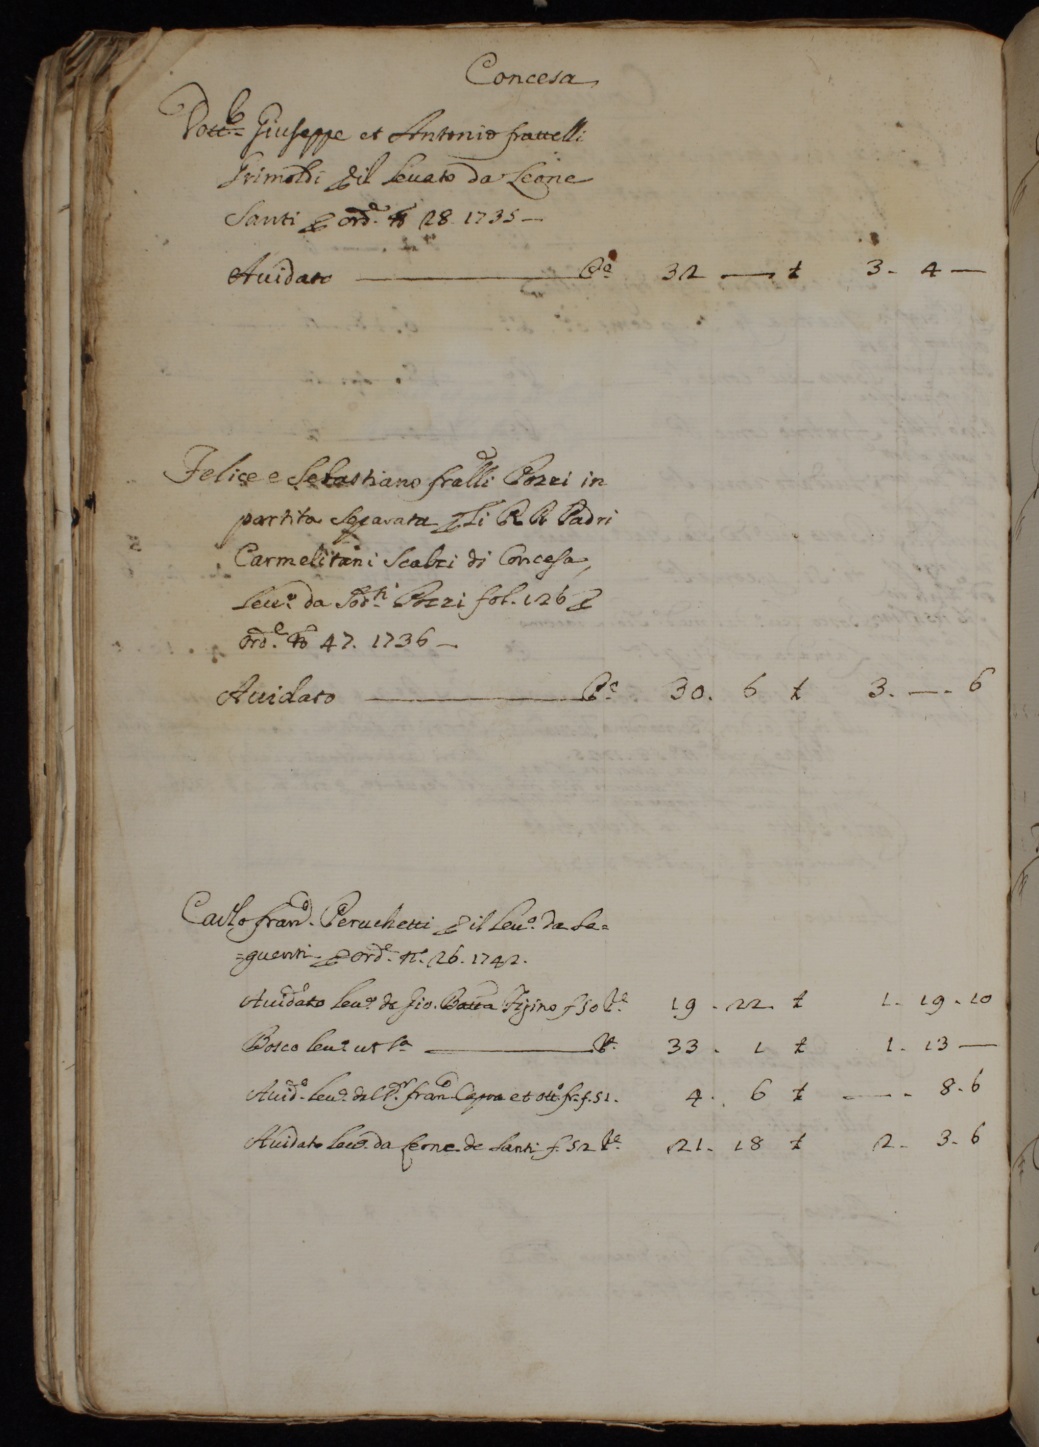 Concesa
Dott.re Giuseppe et Antonio fratelli
Grimoldi p il leuato da Leone
Santi p ord.e n.o 28. 1735 —
Auidato — P.e 32 — £ 3 - 4 —
Felice e Sebastiano fralli Pozzi in
partita separata p li R R Padri
Carmelitani Scalzi di Concesa,
leu.o da Sod.ti Pozzi fol. 126 p
ord.e n.o 47. 1736 —
Auidato — P.e 30. 6 £ 3. —. 6
Carlo Fran.o Peruchetti p il leu.o da se=
=guenti p ord.e n.o 26. 1742.
Auidato leu.o da Gio. Batta Figino f 50 P.e 19 . 22. £ 1. 19. 10
Bosco leu.o ut s.a — P.e 33 . 1 £ 1. 13 —
Auid.o leu.o da fran.o et f. 51. 4 . 6 £ — . 8. 6
Auidato leu.o da Leone de Santi f. 52 P.e 21. 18 £ 2. 3. 6